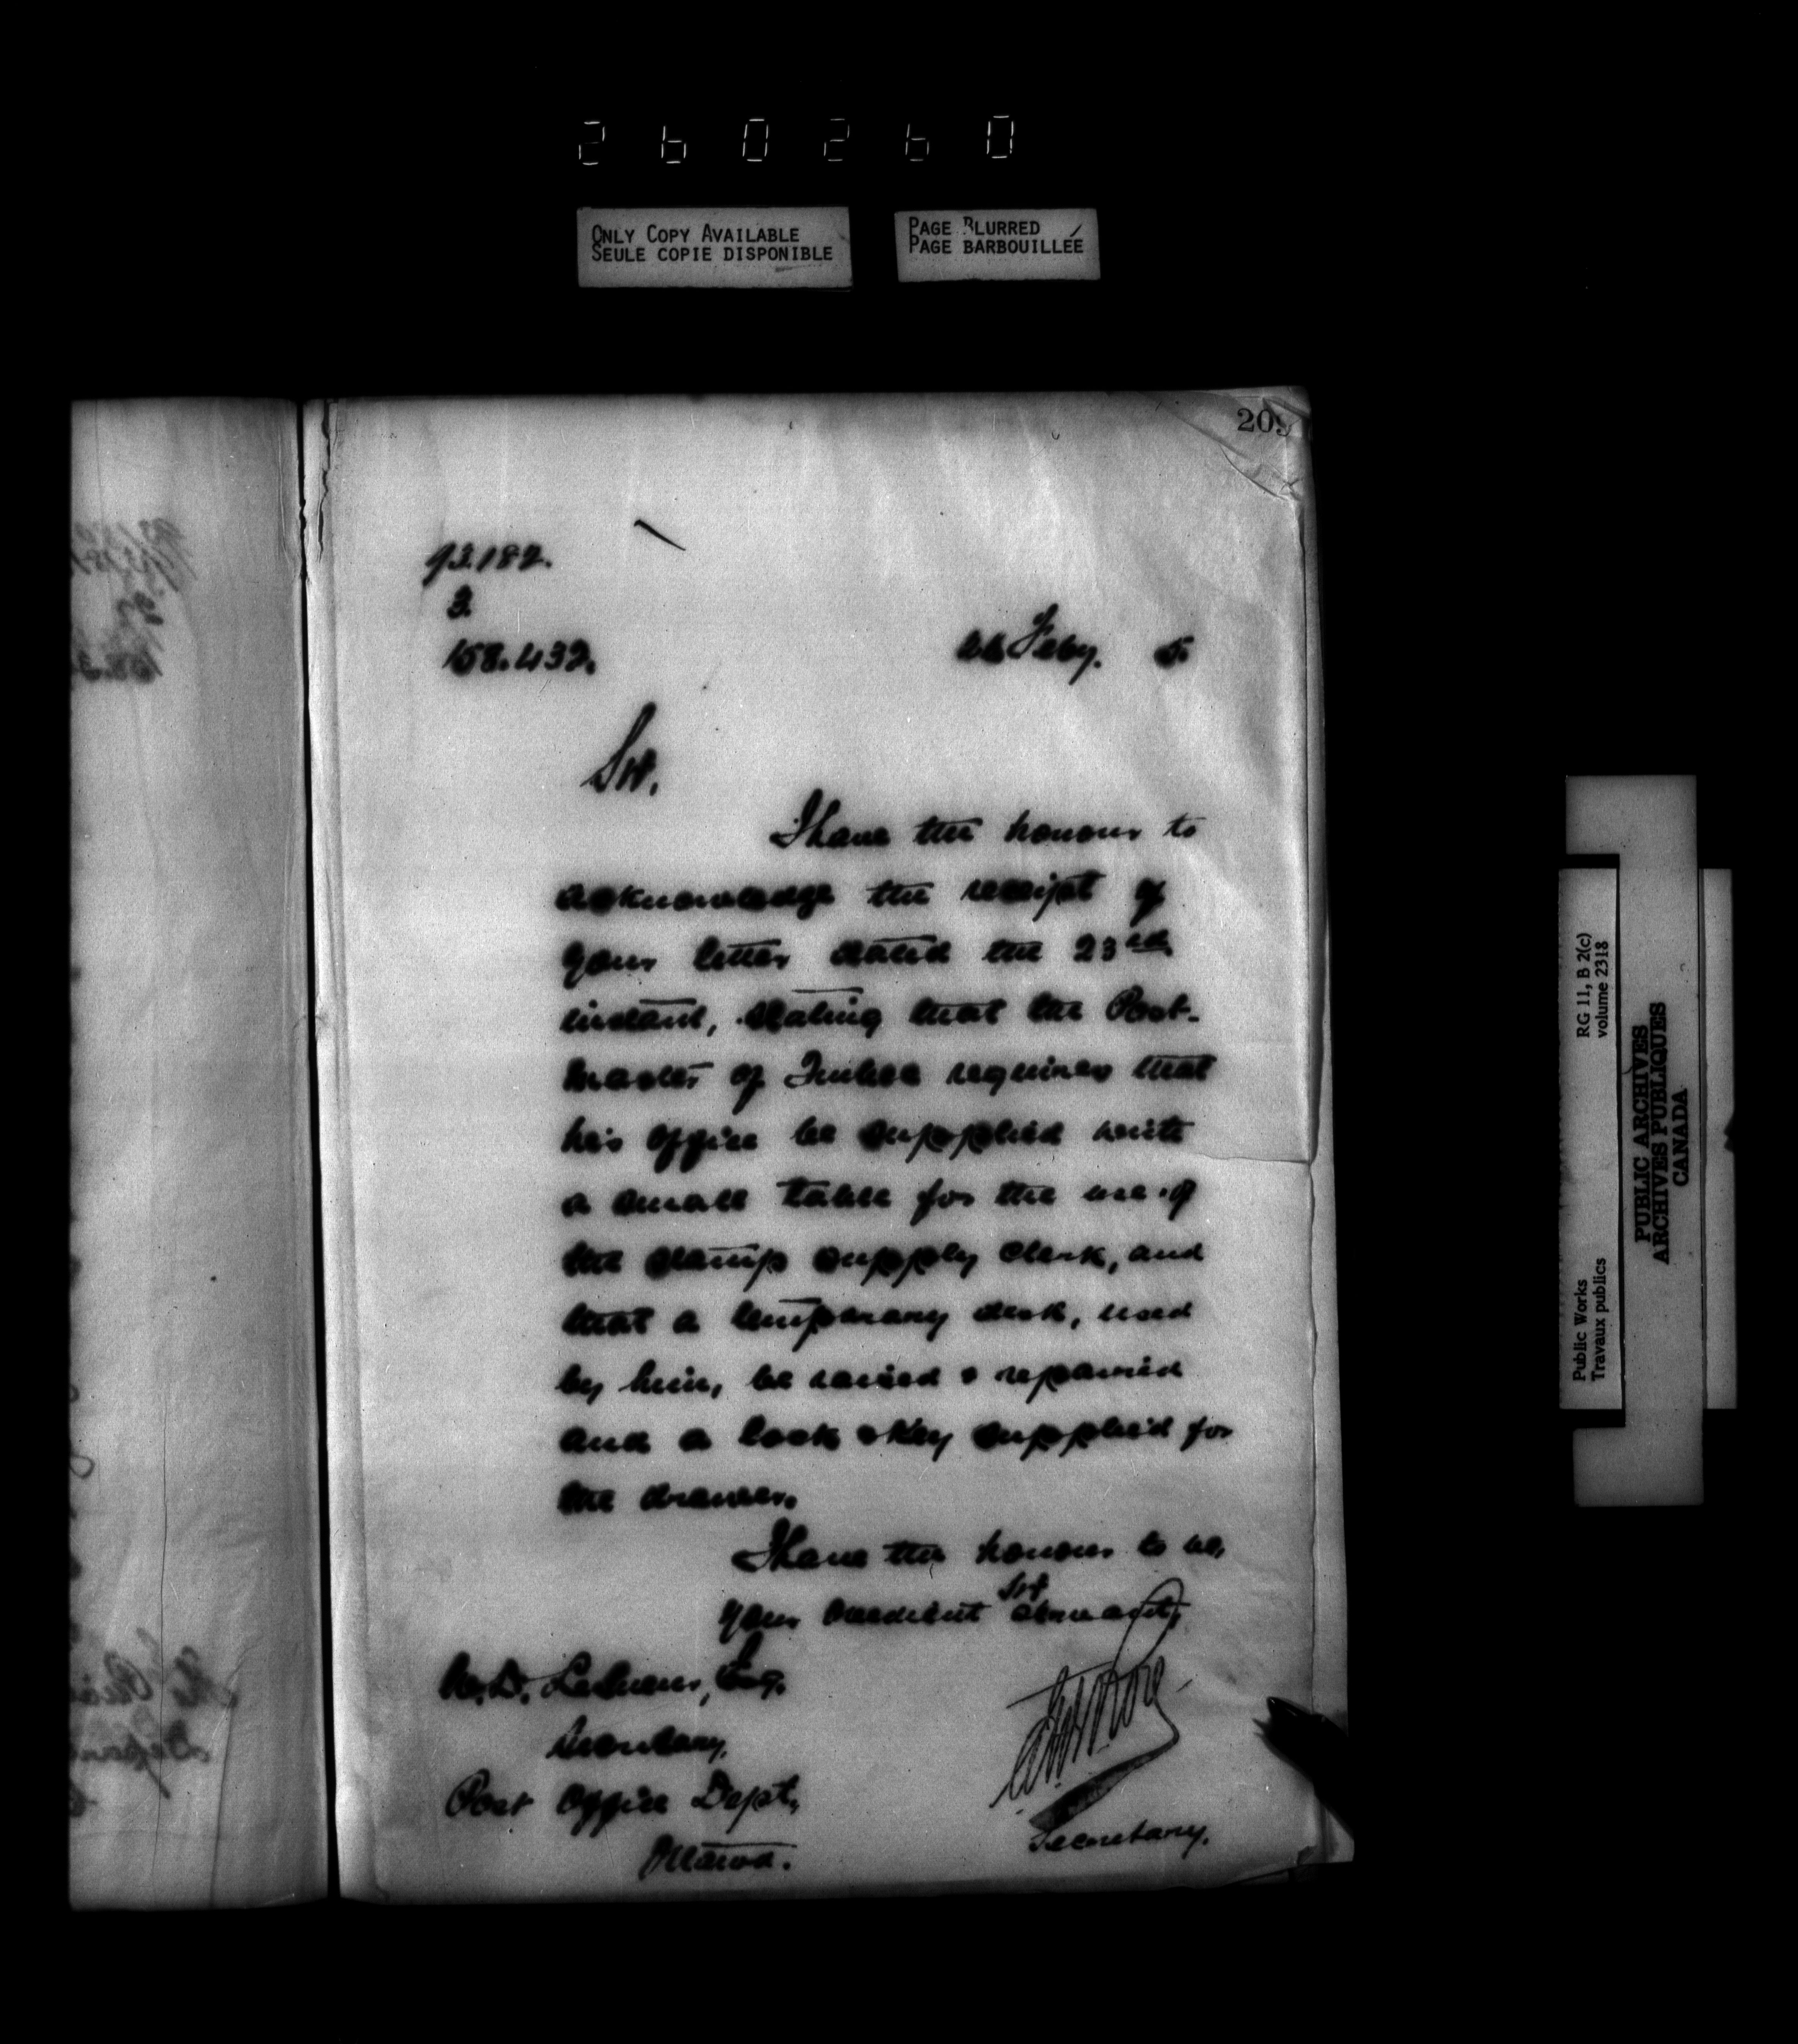 260260
ONLY COPY AVAILABLE
SEULE COPIE DISPONIBLE
PAGE BLURRED
PAGE BARBOUILLÉE
209
93.182.
3.
158.432.
Feby. 5.
Sir,
I have the honour to
acknowledge the receipt of
your letter dated the 23rd
instant, stating that the Post-
master of requires that
his office be supplied with
a small table for the use of
the stamp supply clerk, and
that a temporary desk, used
by him, be raised & repaired
and a lock & key supplied for
the drawer.
I have the honour to be,
Sir,
Your obedient servant,
W.D. LeSueur, Esq.
Secretary,
Post Office Dept.,
Ottawa.
Secretary.
RG 11, B 2(c)
volume 2318
Public Works
Travaux publics
PUBLIC ARCHIVES
ARCHIVES PUBLIQUES
CANADA